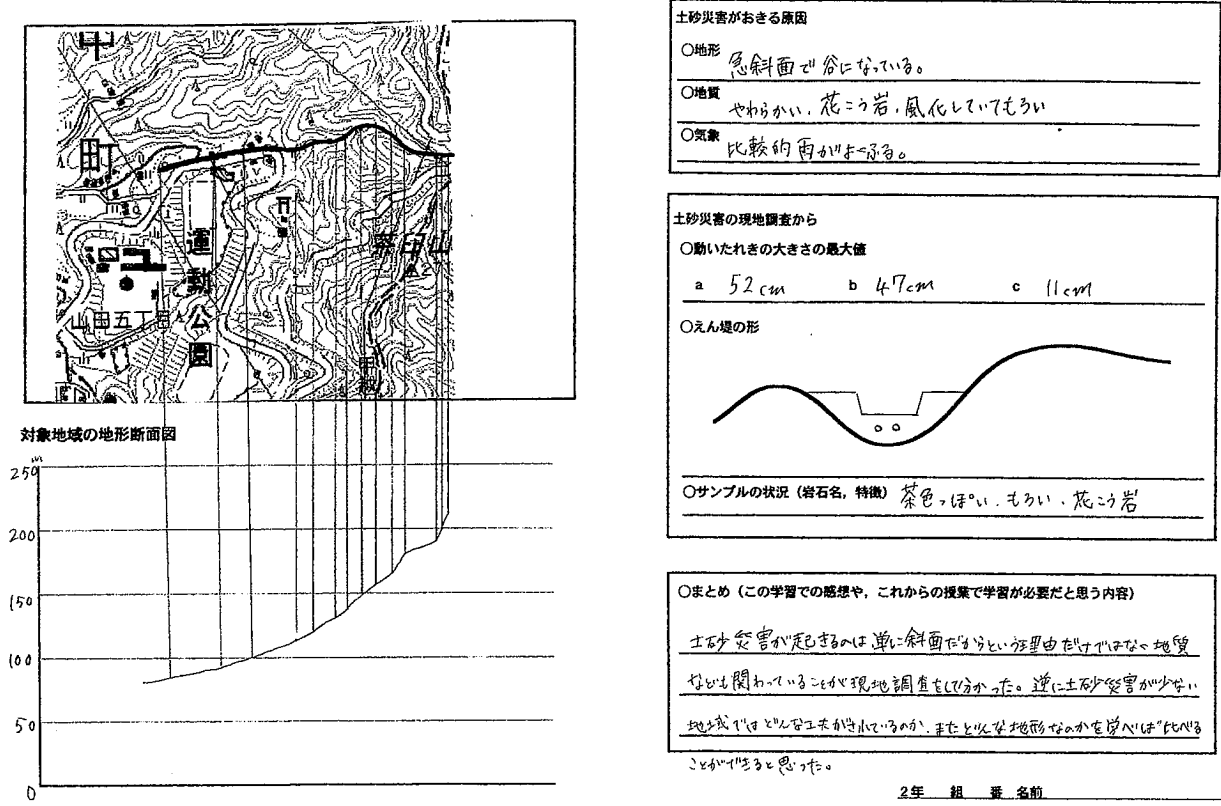 町
運動公園
山田五丁目
茶臼山
対象地域の地形断面図
250m
200
150
100
50
0
土砂災害がおきる原因
○地形 急斜面で谷になっている。
○地質 やわらかい、花こう岩、風化していてもろい
○気象 比較的雨がよくふる。
土砂災害の現地調査から
○動いたれきの大きさの最大値
a 52cm b 47cm c 11cm
○えん堤の形
○サンプルの状況（岩石名，特徴） 茶色っぽい、もろい、花こう岩
○まとめ（この学習での感想や，これからの授業で学習が必要だと思う内容）
土砂災害が起きるのは単に斜面だからという理由だけではなく地質
なども関わっていることが現地調査をして分かった。逆に土砂災害が少ない
地域ではどんな工夫がされているのか、またどんな地形なのかを学べば比べる
ことができると思った。
2年 組 番 名前